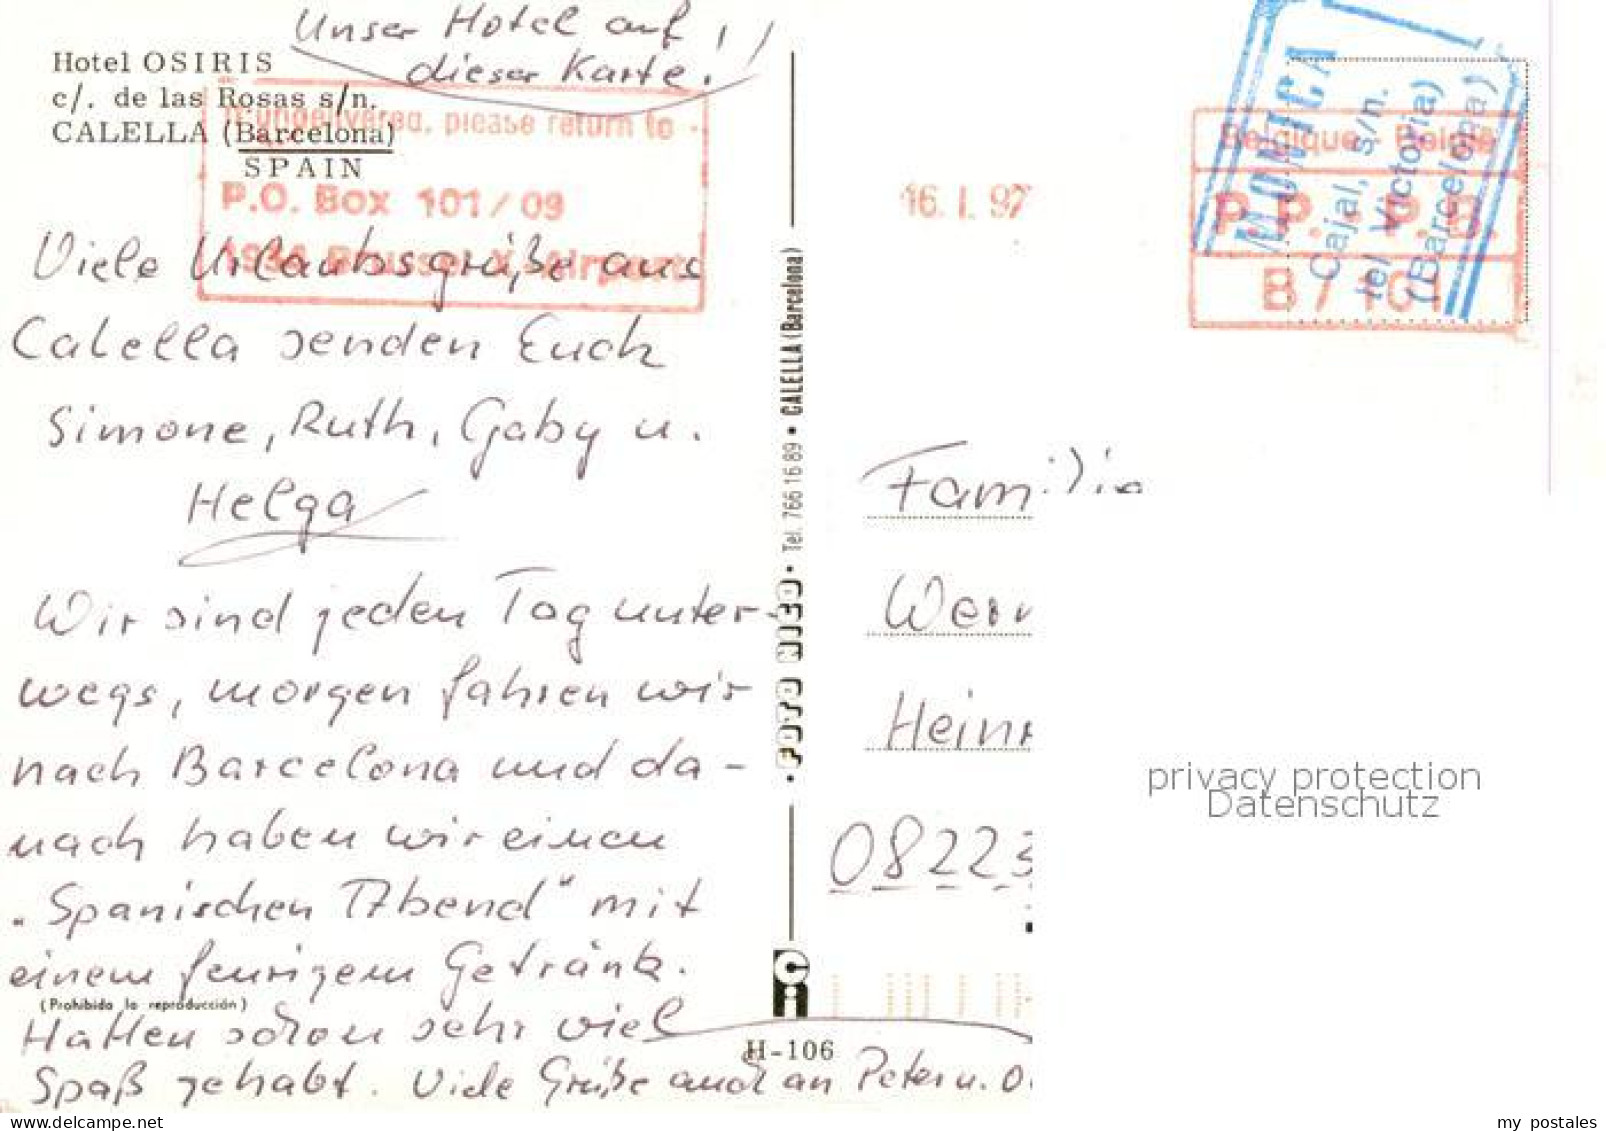 Unser Hotel auf
dieser Karte!!
Hotel OSIRIS
c/. de las Rosas s/n.
CALELLA (Barcelona)
SPAIN
If undelivered, please return to
P.O. Box 101/09
Brussel X-Airport
Viele Urlaubsgrüße aus
Calella senden Euch
Simone, Ruth, Gaby u.
Helga
Wir sind jeden Tag unter-
wegs, morgen fahren wir
nach Barcelona und da-
nach haben wir einen
„Spanischen Abend" mit
einem feurigem Getränk.
(Prohibida la reproducción)
Hatten schon sehr viel
Spaß gehabt. Viele Grüße auch an Peter u. O
H-106
• FOTO NICO • Tel. 766 16 89 • CALELLA (Barcelona)
16. I. 97
Belgique - België
P.P. - P.B.
B /
MONICA
Cajal, s/n.
tel Victoria)
(Barcelona)
Familie
Wern
Heinr
08223
privacy protection
Datenschutz
www.delcampe.net
my_postales